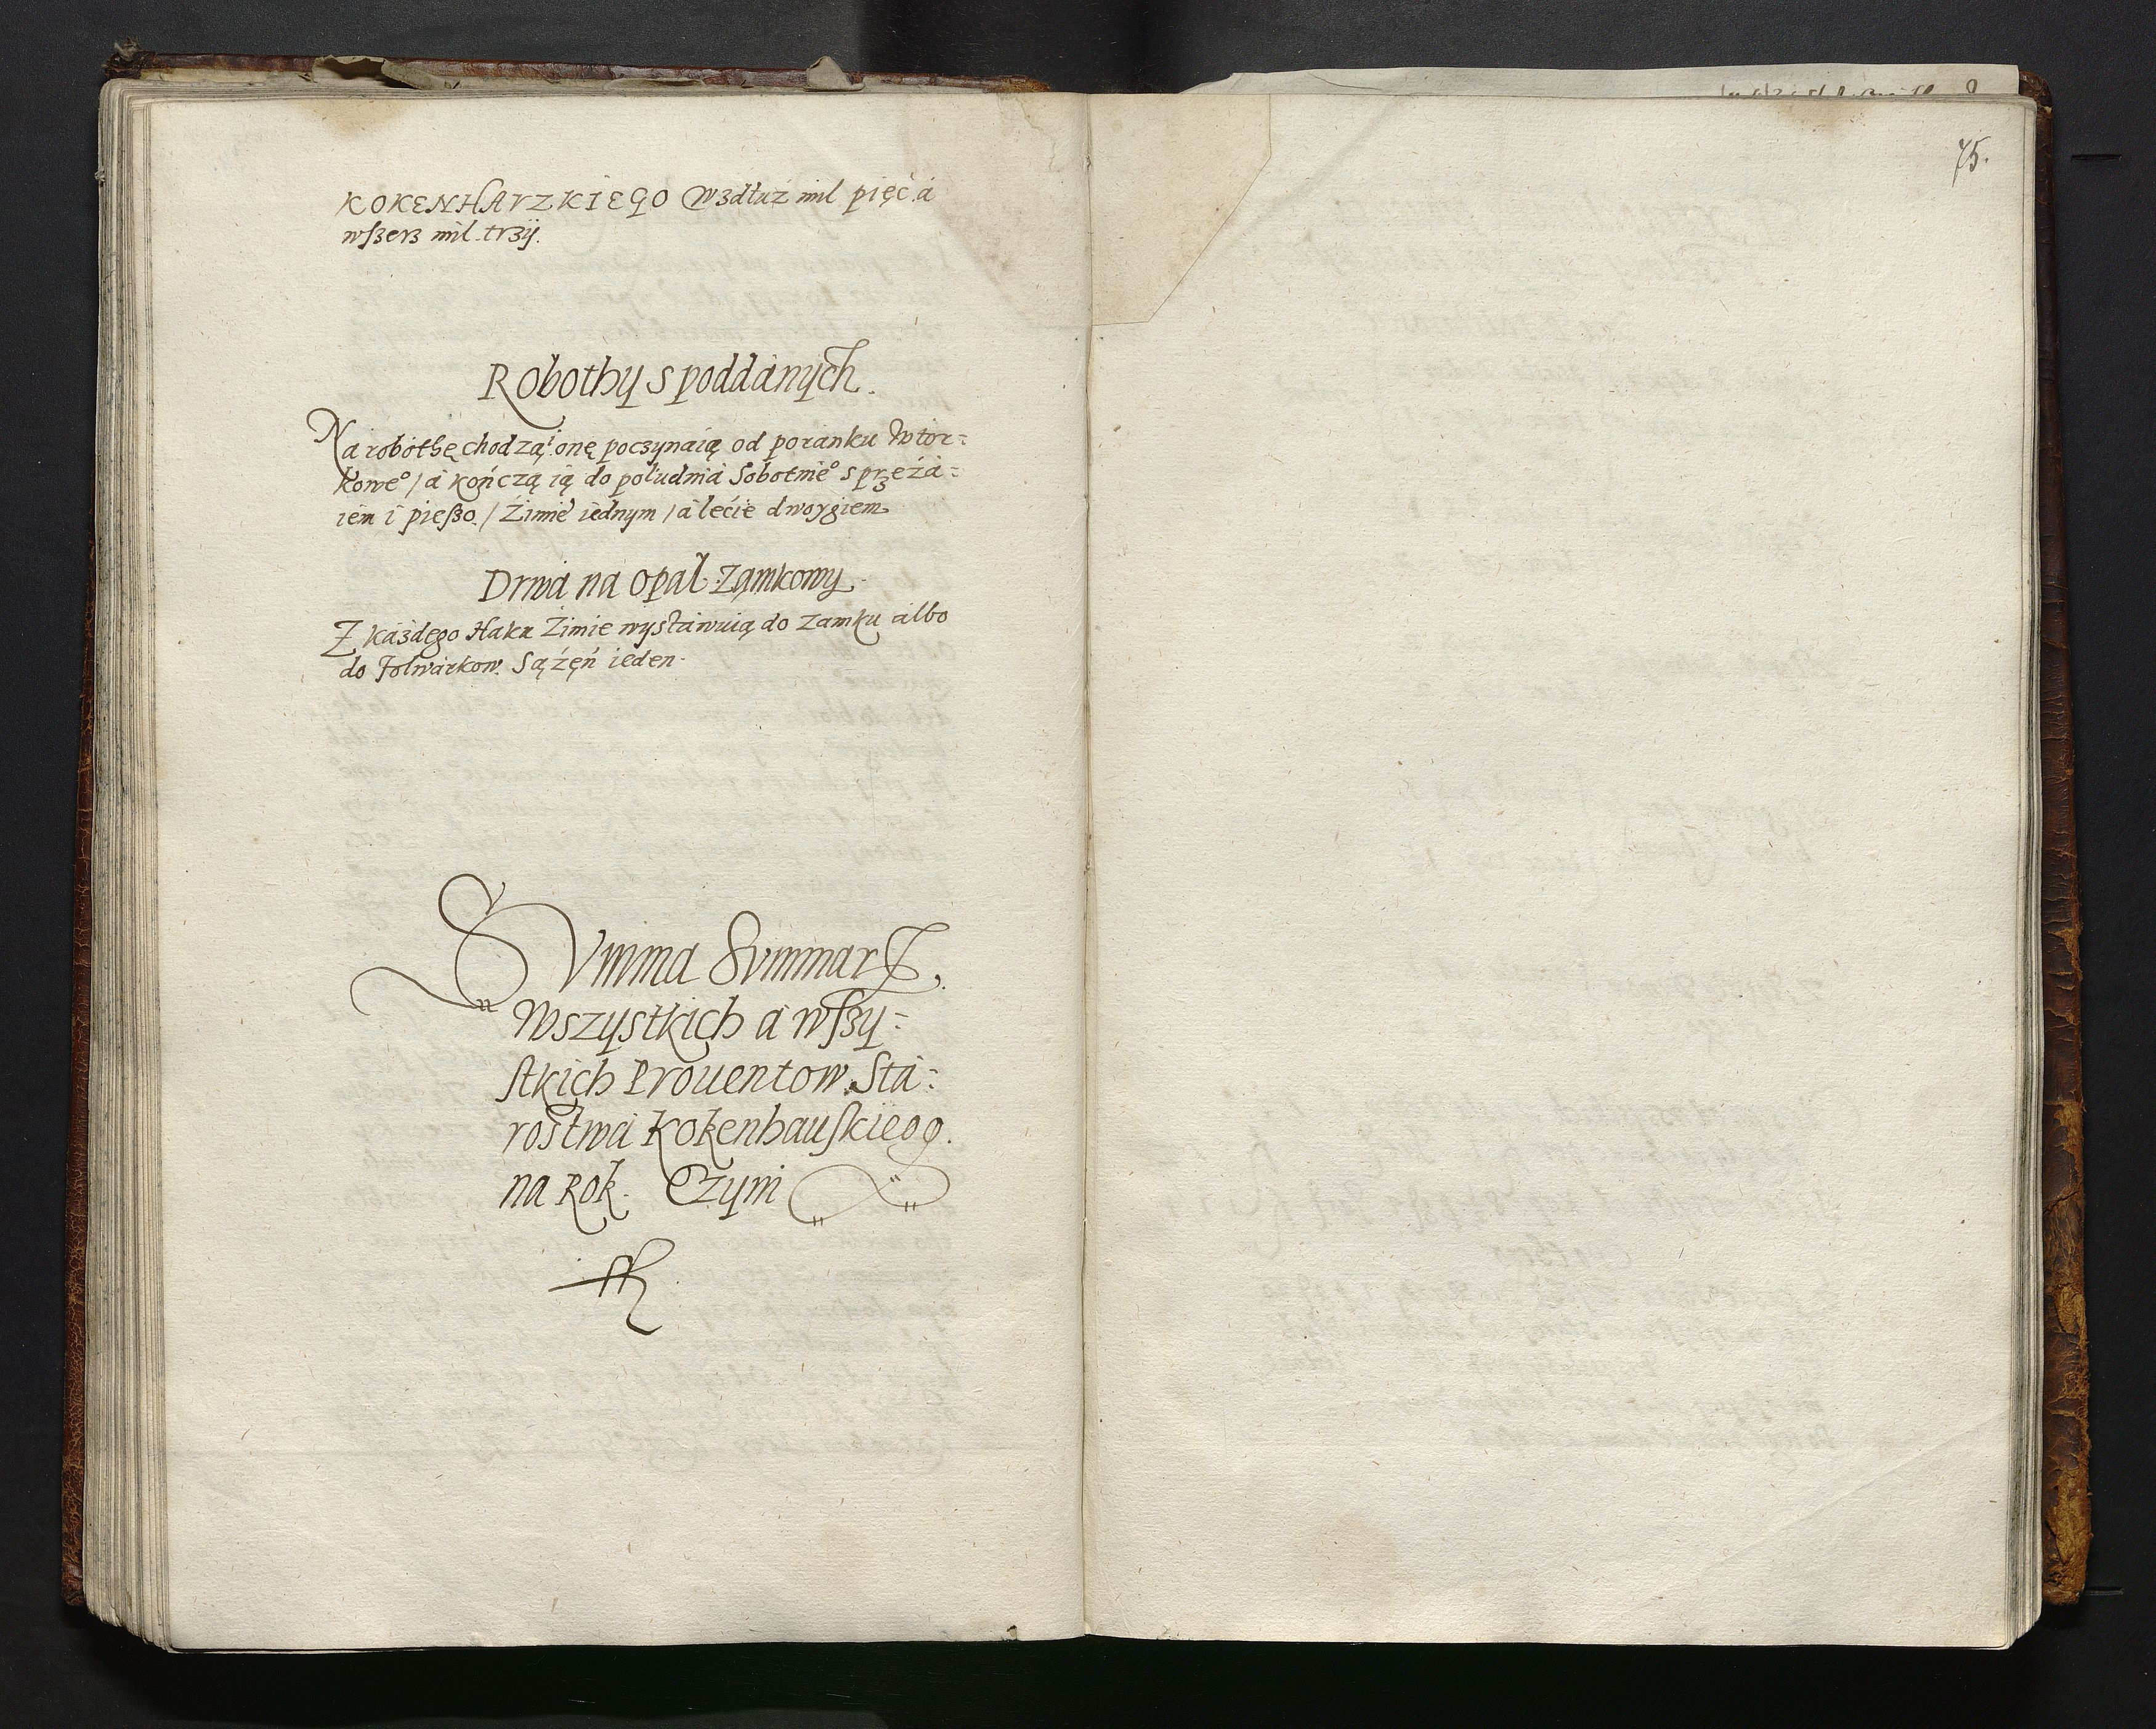 KOKENHAVZKIEGO Wzdłuż mil pięć. á
wszerz mil. trzÿ.
Robothy s poddánych.
Ná robothę chodzą: onę poczynaią od poranku Wtor=
kowe° / á kończą ią do południá Sobotnie° sprzężá=
iem i pieszo. / Źimie iednym / á lećie dwoygiem
Drwá ná Opał Zamkowy.
Z káżdego Haku Źimie wystáwuią do zamku albo
do Folwárkow. Sążęń ieden.
SVmma Svmmar
Wszystkich á wszy=
stkich Prouentow. Stá=
rostwá Kokenhauskieog.
na Rok. Czyni
75.